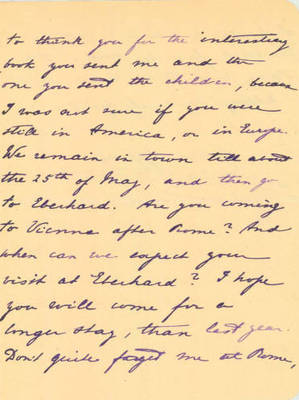 to thank you for the interesting
book you sent me and the
one you sent the children, because
I was not sure if you were
still in America, or in Europe.
We remain in town till about
the 25th of May, and then go
to Eberhard. Are you coming
to Vienna after Rome? And
when can we expect your
visit at Eberhard? I hope
you will come for a
longer stay, than last year.
Don't quite forget me at Rome,